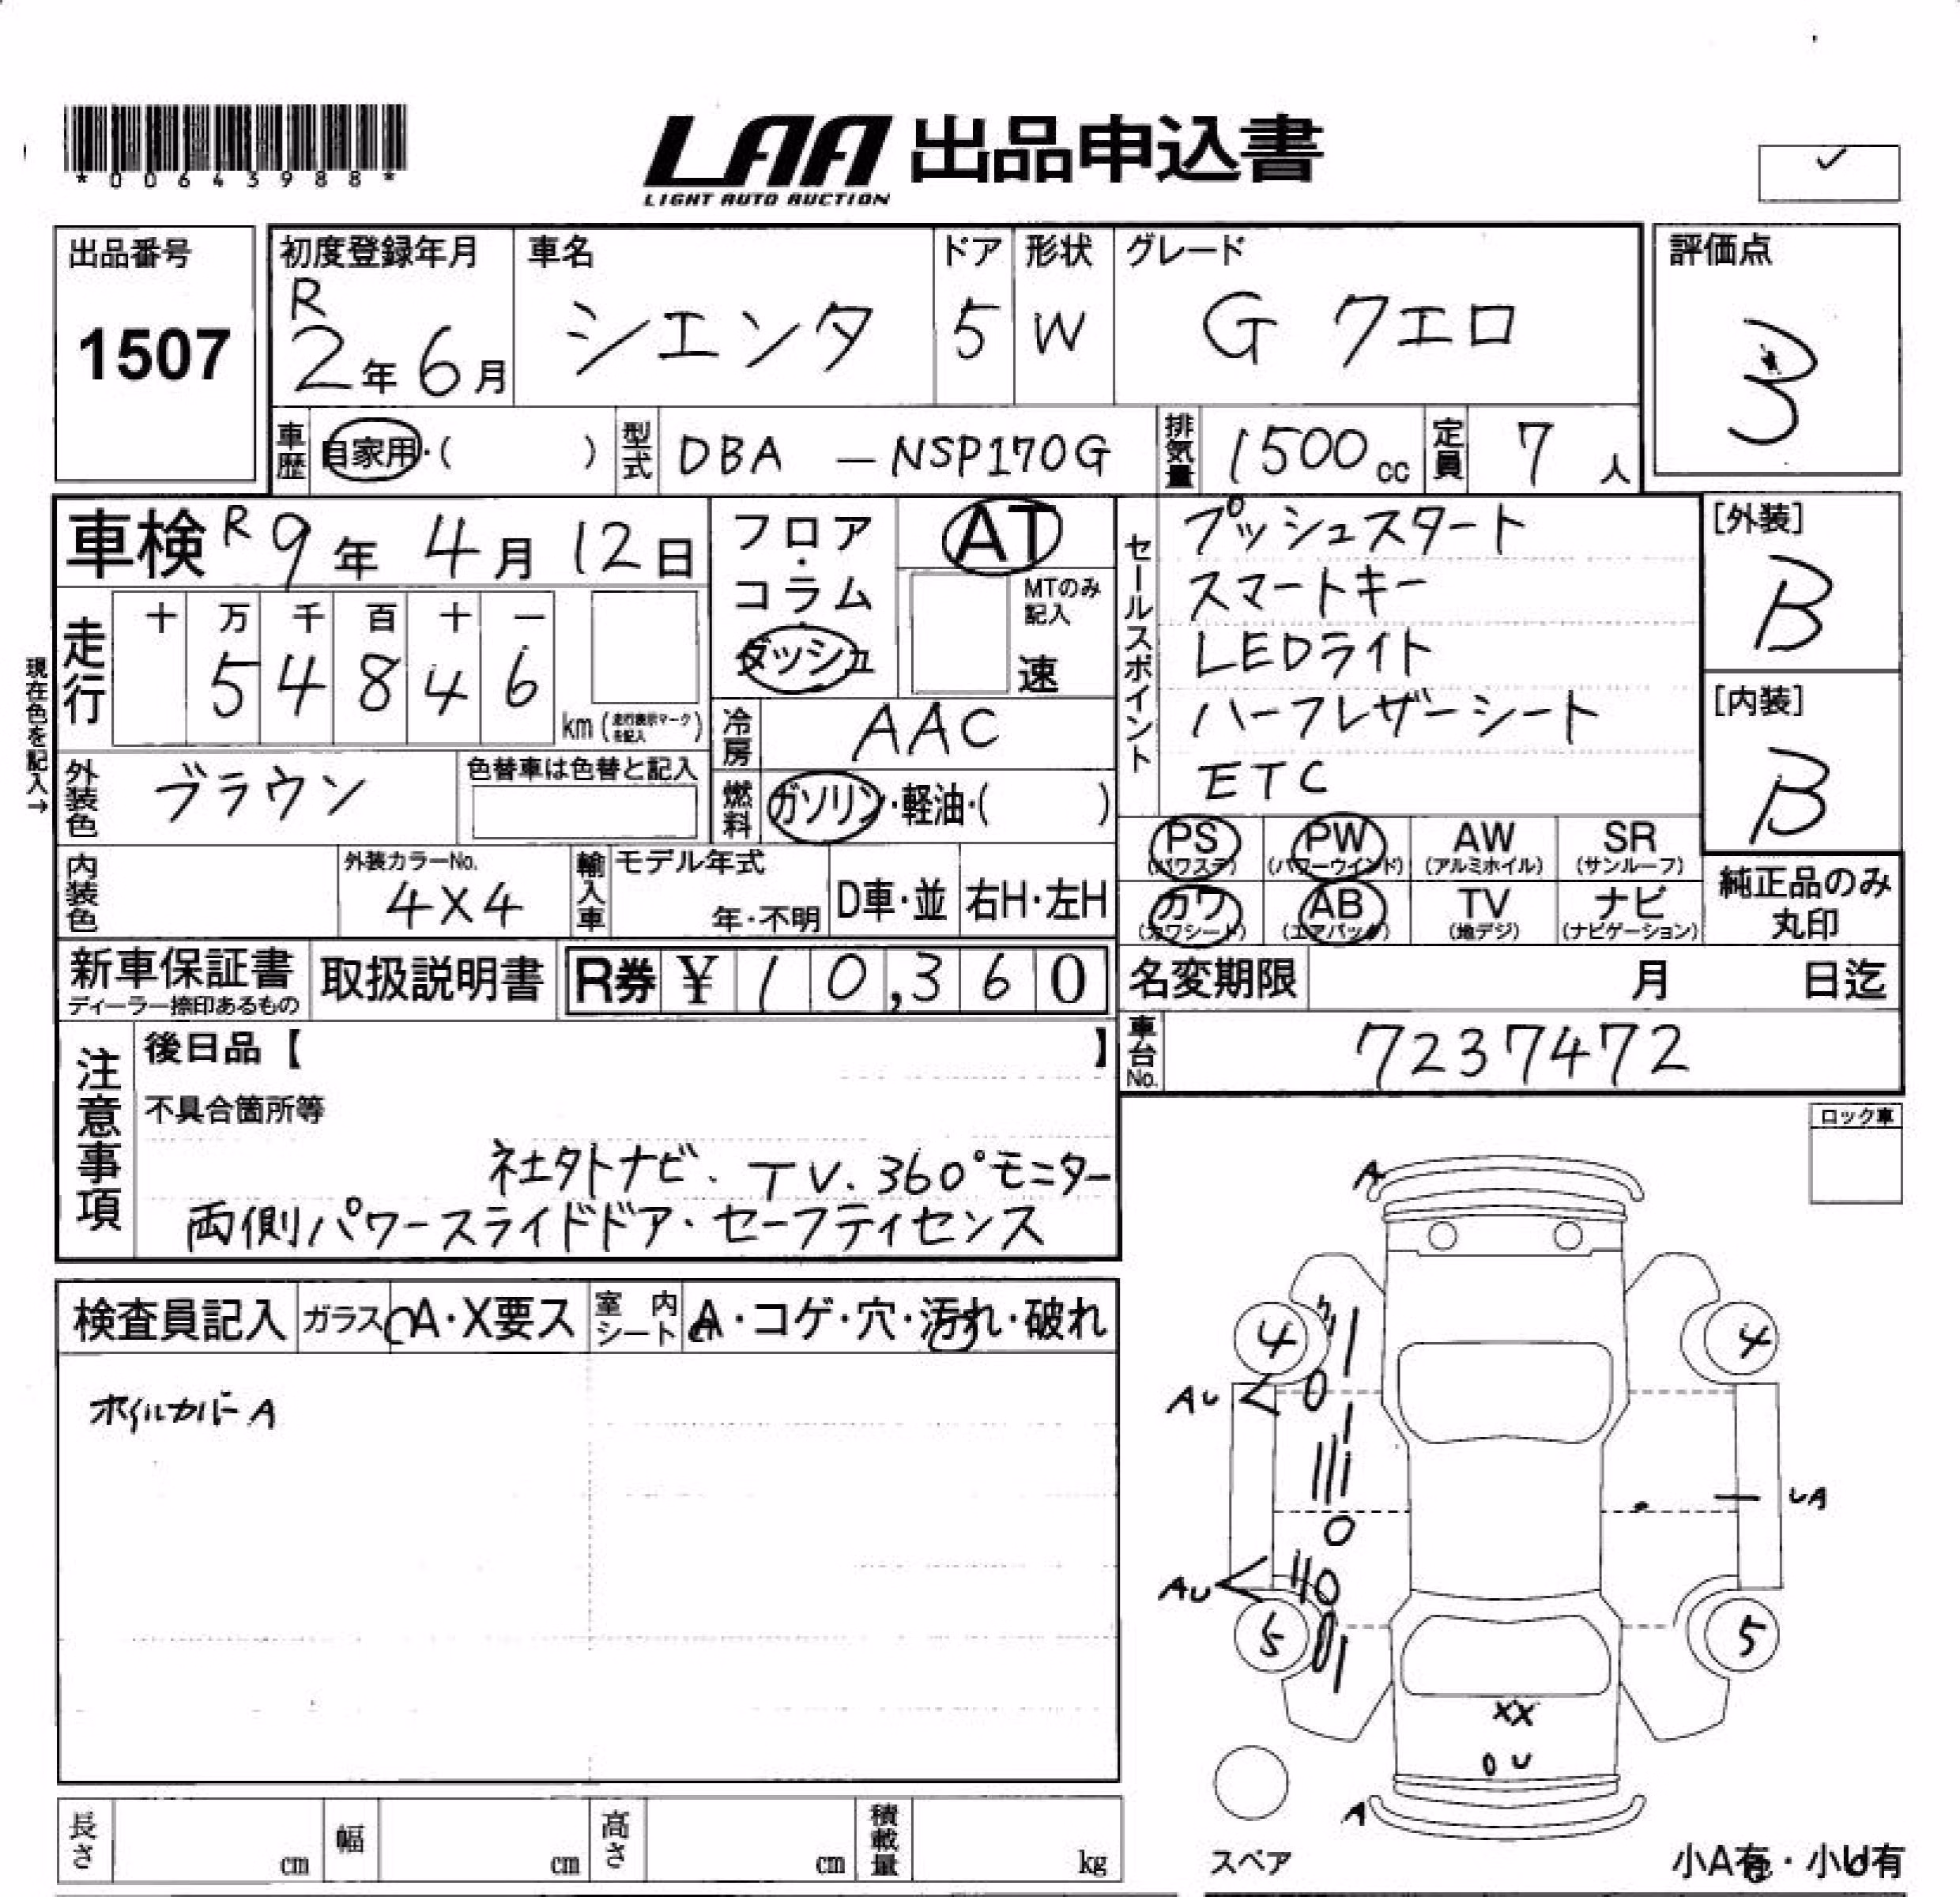 *00643988*
LAA 出品申込書
LIGHT AUTO AUCTION
✓
出品番号
1507
初度登録年月
R
2年6月
車名
シエンタ
ドア
5
形状
W
グレード
G クエロ
評価点
3
車歴
自家用・( )
型式
DBA － NSP170G
排気量
1500cc
定員
7人
車検 R9年4月12日
フロア・コラム・ダッシュ
AT
MTのみ記入
速
セールスポイント
プッシュスタート
スマートキー
LEDライト
ハーフレザーシート
ETC
[外装]
B
[内装]
B
現在色を記入→
走行
十 万 千 百 十 一
5 4 8 4 6
km (走行表示マークを記入)
冷房
AAC
外装色
ブラウン
色替車は色替と記入
燃料
ガソリン・軽油・( )
PS (パワステ)
PW (パワーウインド)
AW (アルミホイル)
SR (サンルーフ)
カワ (カワシート)
AB (エアバック)
TV (地デジ)
ナビ (ナビゲーション)
純正品のみ丸印
内装色
外装カラーNo.
4X4
輸入車
モデル年式
年・不明
D車・並
右H・左H
新車保証書
ディーラー捺印あるもの
取扱説明書
R券 ¥10,360
名変期限 月 日迄
車台No.
7237472
注意事項
後日品【 】
不具合箇所等
社外ナビ・TV・360°モニター
両側パワースライドドア・セーフティセンス
ロック車
検査員記入
ガラス A・X要ス
室内シート A・コゲ・穴・汚れ・破れ
ホイルカバーA
A
4
4
AU
UA
AU
5
5
XX
U
A
スペア
小A有・小U有
長さ cm
幅 cm
高さ cm
積載量 kg